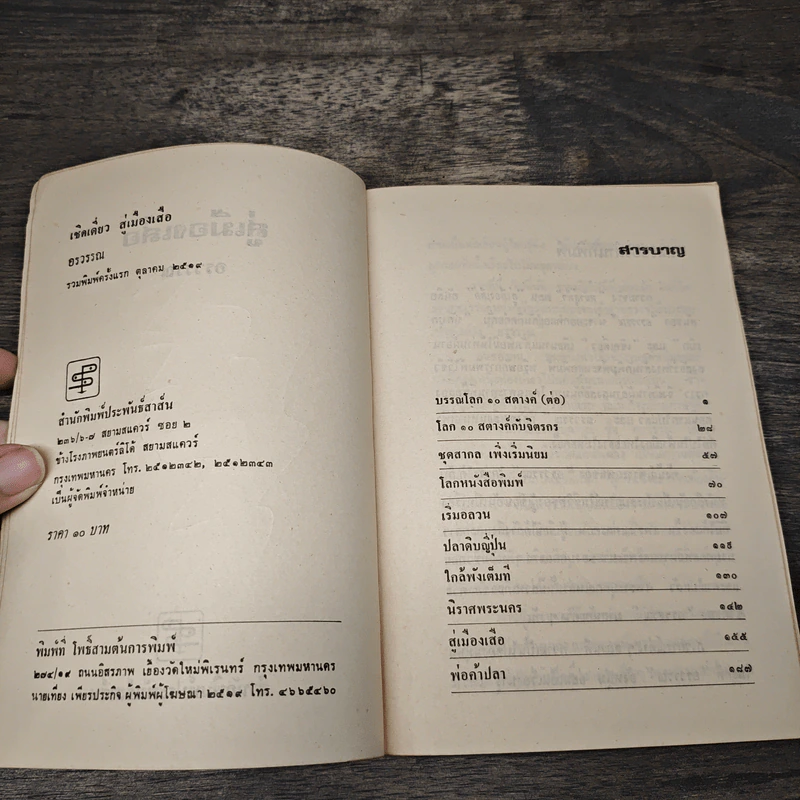 เชิดเดี่ยว สู่เมืองเสือ
อรวรรณ
รวมพิมพ์ครั้งแรก ตุลาคม ๒๕๑๙
สำนักพิมพ์ประพันธ์สาส์น
๒๓๖/๖-๗ สยามสแควร์ ซอย ๒
ข้างโรงภาพยนตร์ลิโด้ สยามสแควร์
กรุงเทพมหานคร โทร. ๒๕๑๒๓๔๒, ๒๕๑๒๓๔๓
เป็นผู้จัดพิมพ์จำหน่าย
ราคา ๑๐ บาท
พิมพ์ที่ โพธิ์สามต้นการพิมพ์
๒๗๔/๑๙ ถนนอิสรภาพ เยื้องวัดใหม่พิเรนทร์ กรุงเทพมหานคร
นายเที่ยง เพียรประกิจ ผู้พิมพ์ผู้โฆษณา ๒๕๑๙ โทร. ๔๖๖๕๔๖๐
สารบาญ
บรรณโลก ๑๐ สตางค์ (ต่อ) ๑
โลก ๑๐ สตางค์กับจิตรกร ๒๘
ชุดสากล เพิ่งเริ่มนิยม ๕๗
โลกหนังสือพิมพ์ ๗๐
เริ่มอลวน ๑๐๗
ปลาดิบญี่ปุ่น ๑๑๙
ใกล้พังเต็มที ๑๓๐
นิราศพระนคร ๑๔๒
สู่เมืองเสือ ๑๕๕
พ่อค้าปลา ๑๘๗